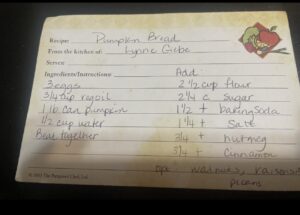 Recipe: Pumpkin Bread
From the kitchen of: Lynne Giebe
Serves:
Ingredients/Instructions: Add:
3 eggs 2 1/2 cup flour
3/4 cup veg oil 2 1/4 c sugar
1 lb can pumpkin 1 1/2 t baking soda
1/2 cup water 1 1/4 t salt
Beat together 3/4 t nutmeg
3/4 t cinnamon
opt walnuts, raisens
pecans
The Pampered Chef, Ltd.